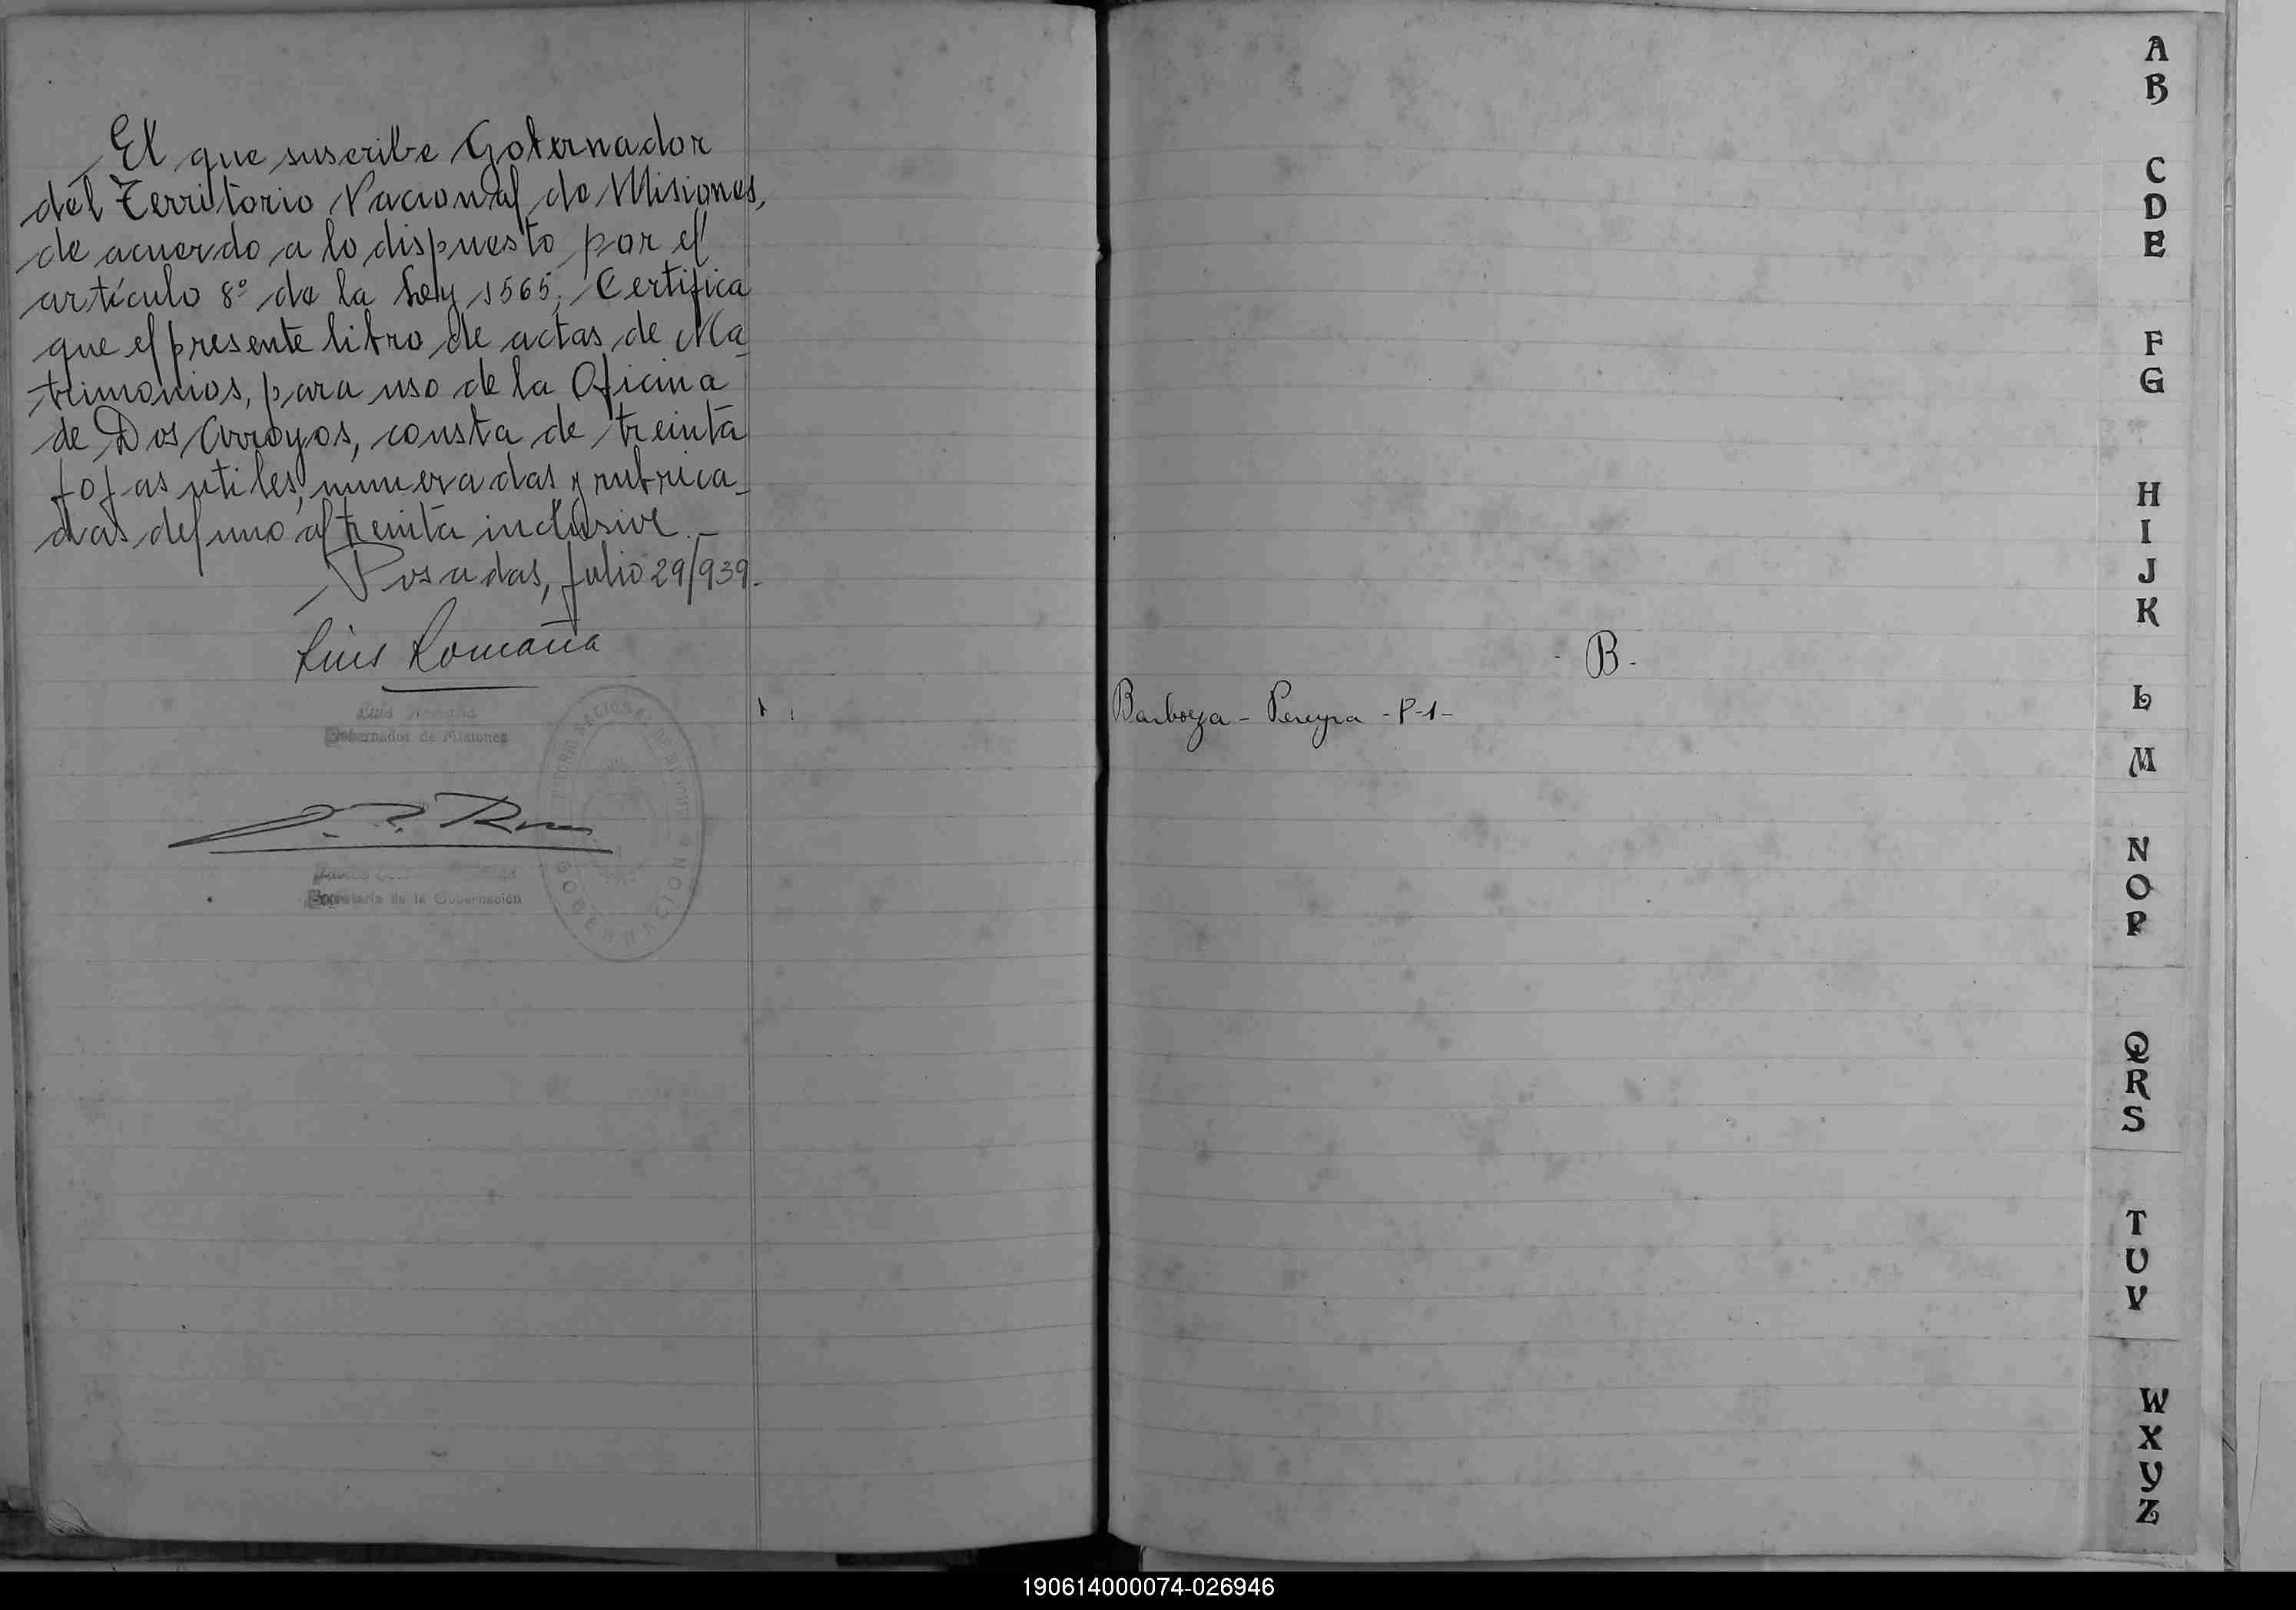 El que suscribe Gobernador
del Territorio Nacional de Misiones,
de acuerdo a lo dispuesto por el
artículo 8º de la Ley 1565, Certifica
que el presente libro de actas de Ma-
trimonios, para uso de la Oficina
de Dos Arroyos, consta de treinta
fojas utiles, numeradas y rubrica-
das del uno al treinta inclusive.-
Posadas, Julio 29/939.
Luis Romaña
Luis Romaña
Gobernador de Misiones
Secretario de la Gobernación
TERRITORIO NACIONAL DE MISIONES
GOBERNACION
- B -
Barboza - Pereyra - P-1-
A
B
C
D
E
F
G
H
I
J
K
L
M
N
O
P
Q
R
S
T
U
V
W
X
Y
Z
190614000074-026946